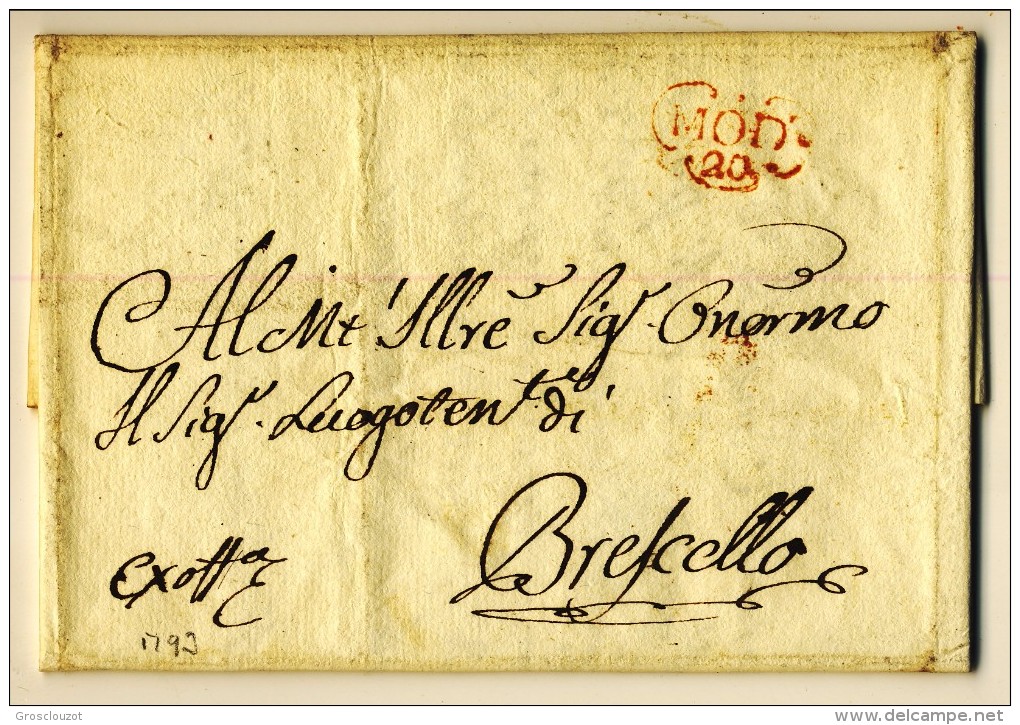 Món
20
Al Mt' Illrē Sigr. Onōrmo
Il Sigr. Luogotente. di
Brescello
1793
Grosclouzot
www.delcampe.net